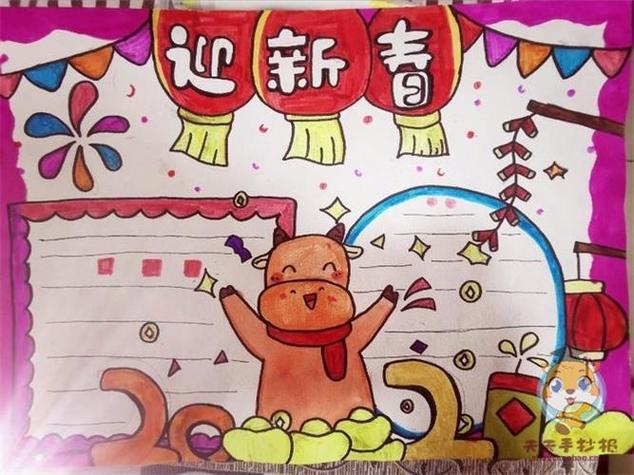 迎新春
202
天天手抄报